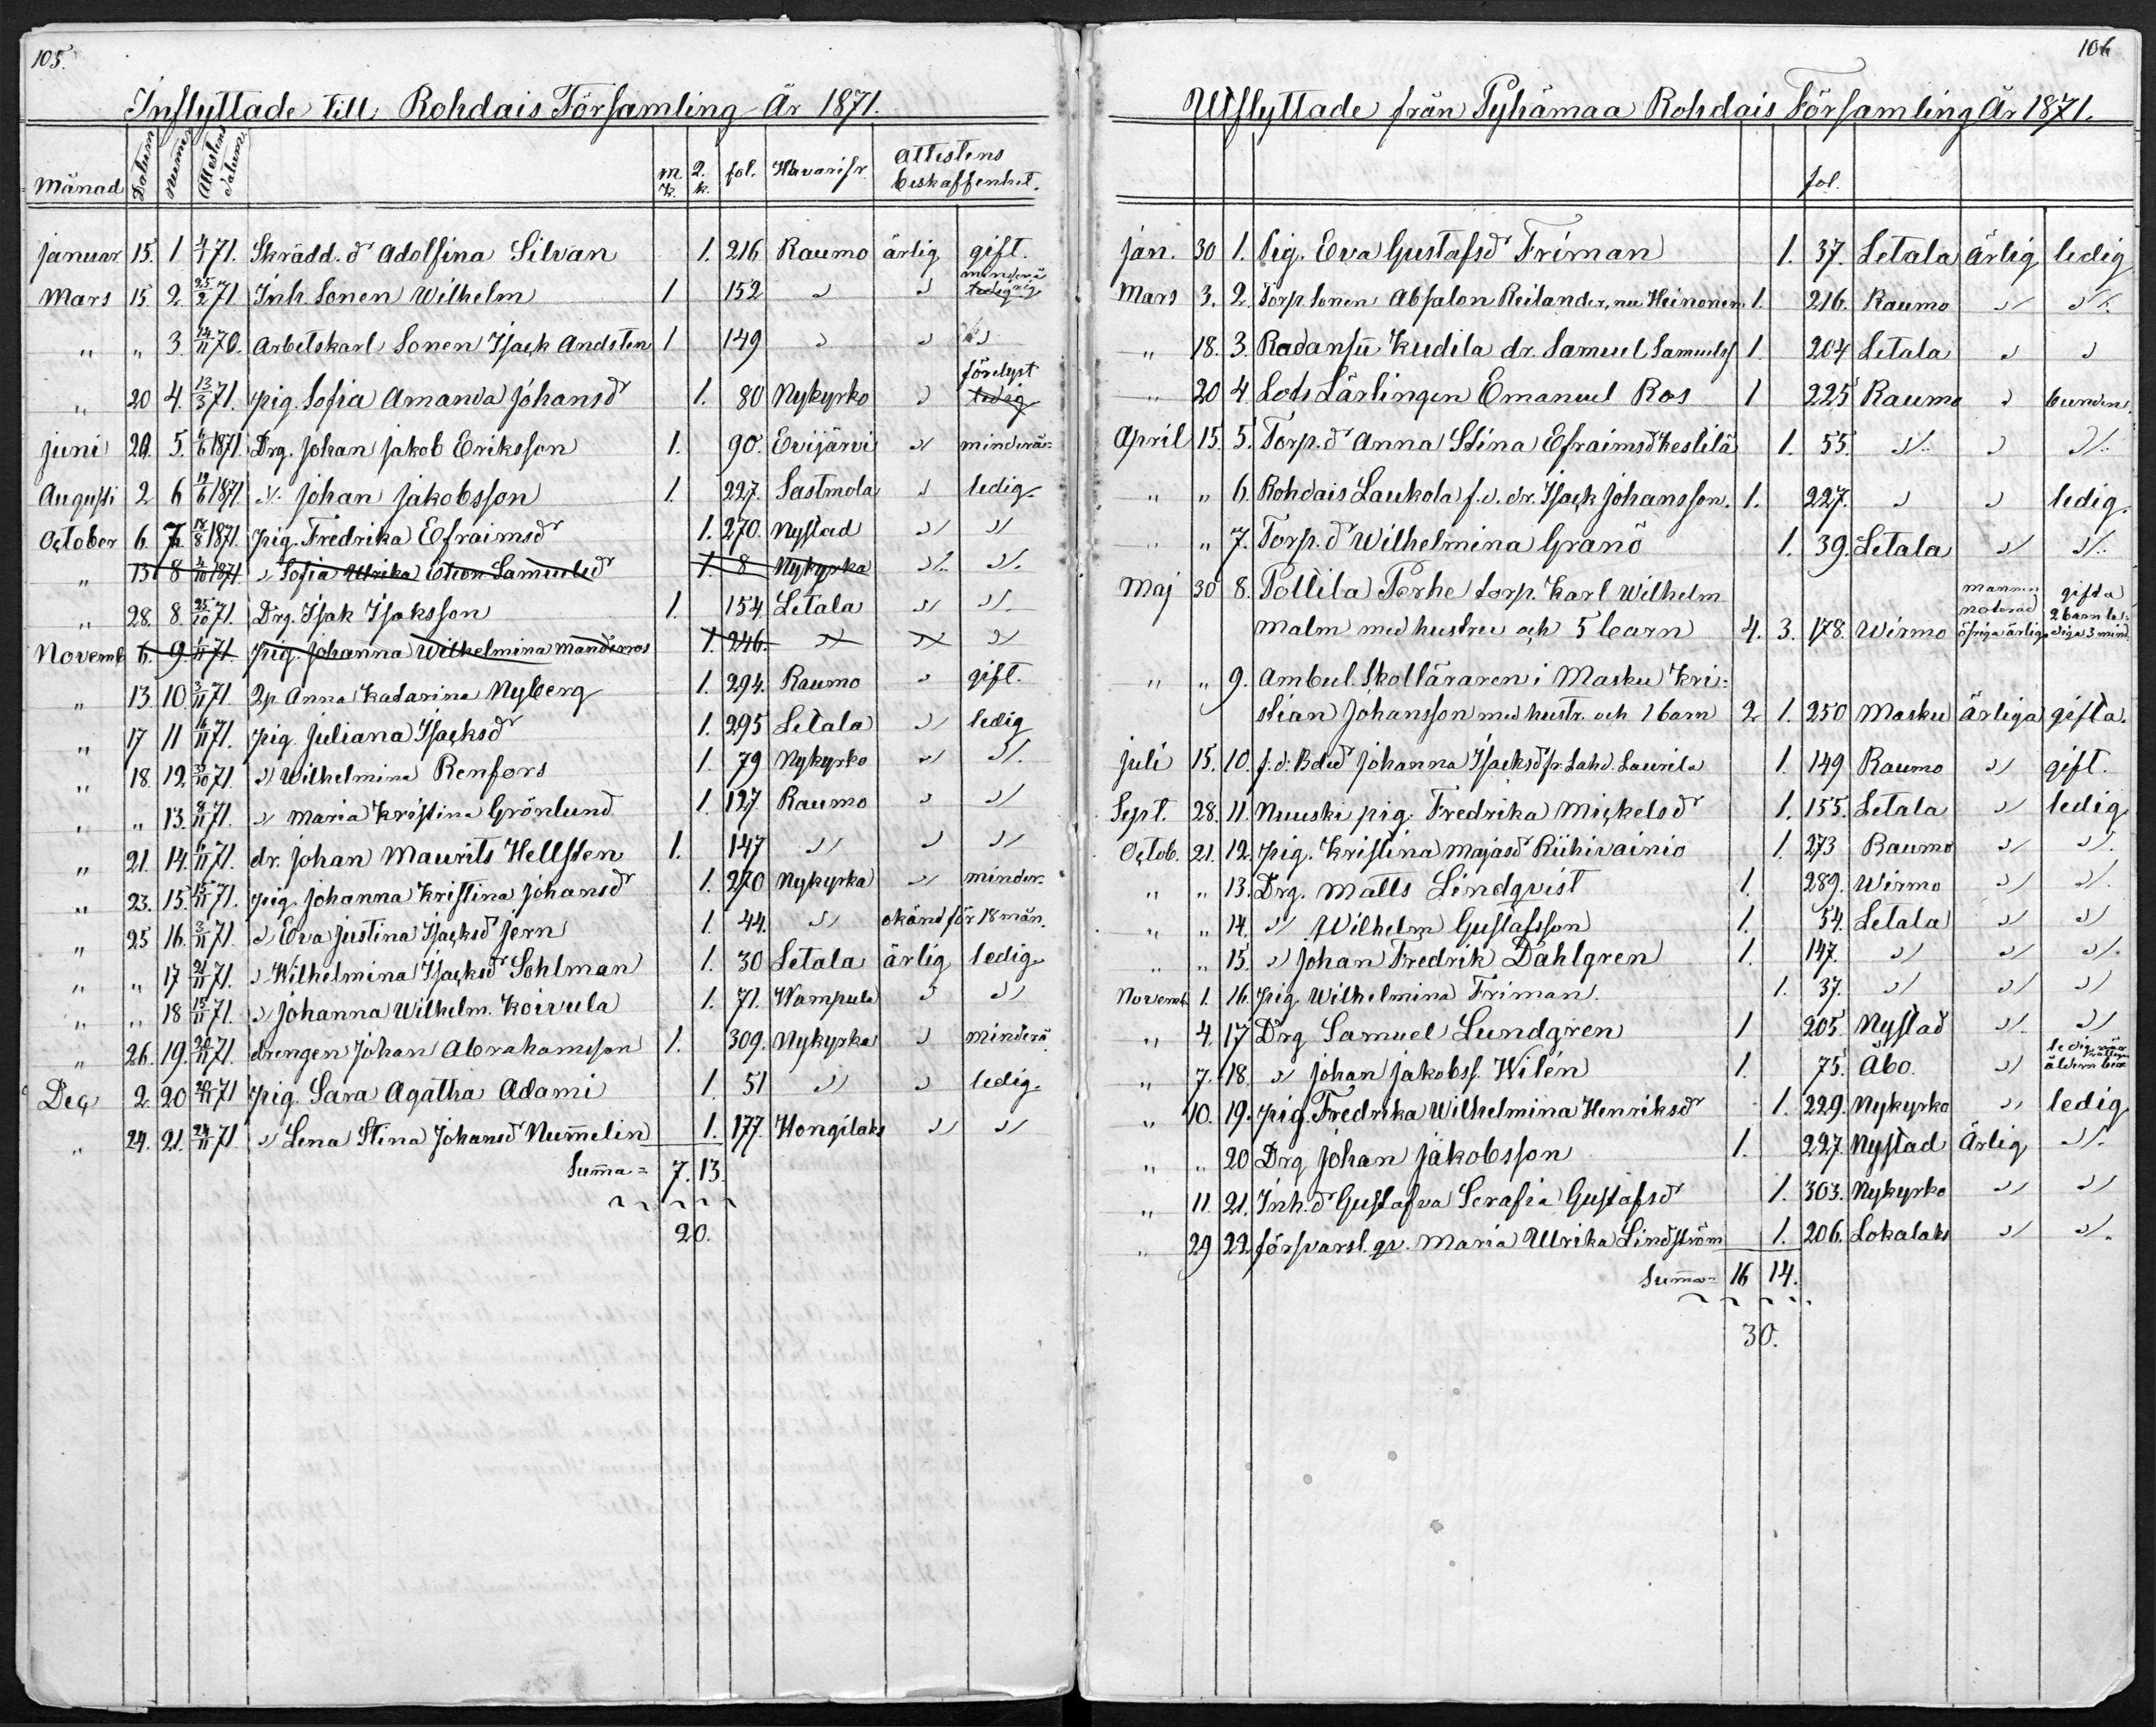 105.
Inflyttade till Rohdais Församling År 1871.
Månad Datum Numer Attestens datum m. k. 2. k. fol. Hvarifr. Attestens beskaffenhet.
Januar 15. 1. 4/1 71. Skrädd. d:r Adolfina Silvan 1. 216 Raumo ärlig gift.
Mars 15. 2. 25/2 71 Inh Sonen Wilhelm 1 152 " " minderårig
" " 3. 14/11 70. Arbetskarl Sonen Isack Andsten 1 149 " " "
" 20 4. 13/3 71. pig. Sofia Amanda Johansdr 1. 80 Nykyrko " förelyst
Juni 20. 5. 4/6 1871. Drg. Johan Jakob Eriksson 1. 90. Evijärvi " minderår-
Augusti 2 6 19/6 1871. " Johan Jakobsson 1. 227. Sastmola " ledig.
October 6. 7. 18/8 1871. pig. Fredrika Efraimsdr 1. 270. Nystad " "
" 13 8 4/10 1871 " Sofia Ulrika Samuelsdr 1. 8 Nykyrka " "
" 28. 8 25/10 71. Drg. Isak Isaksson 1. 154. Letala " "
Novemb. 6. 9. 1/11 71. pig. Johanna Wilhelmina Manderroos 1. 246. " " "
" 13. 10. 3/11 71. Anna Katarina Nyberg 1. 294. Raumo " gift.
" 17 11 16/11 71. pig. Juliana Isacksdr 1. 295 Letala " ledig
" 18. 12. 30/10 71. " Wilhelmina Renfors 1. 79 Nykyrko " "
" " 13. 8/11 71. " Maria Kristina Grönlund 1. 127 Raumo " "
" 21. 14. 6/11 71. dr. Johan Maurits Hellsten 1. 147 " " "
" 23. 15. 15/11 71. pig. Johanna Kristina Johansdr 1. 270 Nykyrka " minder.
" 25 16. 3/11 71. " Eva Justina Isacksdr Jern 1. 44. " okänd för 18 mån.
" " 17 21/11 71. " Wilhelmina Isacksdr Sohlman 1. 30 Letala ärlig ledig.
" " 18 15/11 71. " Johanna Wilhelm. Koivula 1. 71. Wampula " "
" 26. 19. 20/11 71. drengen Johan Abrahamsson 1. 309. Nykyrka " minderå
Dec 2. 20 71 pig. Sara Agatha Adami 1. 51 " " ledig.
" 24. 21. 24/11 71 " Lena Stina Johansdr Numelin 1. 177. Hongilaks " "
Suma = 7. 13.
20.
106
Utflyttade från Pyhämaa Rohdais Församling År 1871.
fol.
Jan. 30 1. Pig. Eva Gustafsdr Friman 1. 37. Letala Ärlig ledig
Mars 3. 2. Torp. Sonen Absalon Reilander, nu Heinonen. 1. 216. Raumo " "
" 18. 3. Radansu Kudila dr. Samuel Samuelss 1 204 Letala " "
" 20 4 Lots Lärlingen Emanuel Ros 1 225 Raumo " bunden.
April 15. 5. Torp. dr Anna Stina Efraimsdr Kestilä 1. 55. " " "
" " 6. Rohdais Laukola f.d. dr. Isack Johansson. 1. 227. " " ledig.
" " 7. Torp. dr Wilhelmina Granö 1. 39. Letala " "
Maj 30 8. Pollila Perhe torp. Karl Wilhelm mannen noterad gifta
Malm med hustru och 5 barn 4. 3. 178. Wirmo öfriga ärliga 2 barn lediga 3 mind.
" " 9. Ambul. Skolläraren i Masku Kri-
stian Johansson med hustr. och 1 barn 2 1. 250 Masku Ärliga gifta.
Juli 15. 10. f.d. Johanna Isacksdr fr. Lahd. Laurila 1. 149 Raumo " gift.
Sept. 28. 11. Nuuski pig. Fredrika Mickelsdr 1. 155. Letala " ledig
Octob. 21. 12. pig. Kristina Majasdr Riihivainio 1. 273 Raumo " "
" " 13. Drg. Matts Lindqvist 1. 289. Wirmo " "
" " 14. " Wilhelm Gustafsson 1. 54. Letala " "
" " 15. " Johan Fredrik Dahlgren 1. 147. " " "
Novemb. 1. 16. pig. Wilhelmina Friman. 1. 37. " " "
" 4. 17 Drg Samuel Lundgren 1 205. Nystad " "
" 7. 18. " Johan Jakobss. Wilén 1. 75. Åbo. " ledig
" 10. 19. pig. Fredrika Wilhelmina Henriksdr 1. 229. Nykyrko " ledig
" " 20 Drg Johan Jakobsson 1. 227. Nystad Ärlig "
" 11 21. Inh. dr Gustafva Serafia Gustafsdr 1. 303. Nykyrko " "
" 29 22 försvarsl. qv. Maria Ulrika Lindström 1. 206. Lokalaks " "
Suma = 16 14.
30.